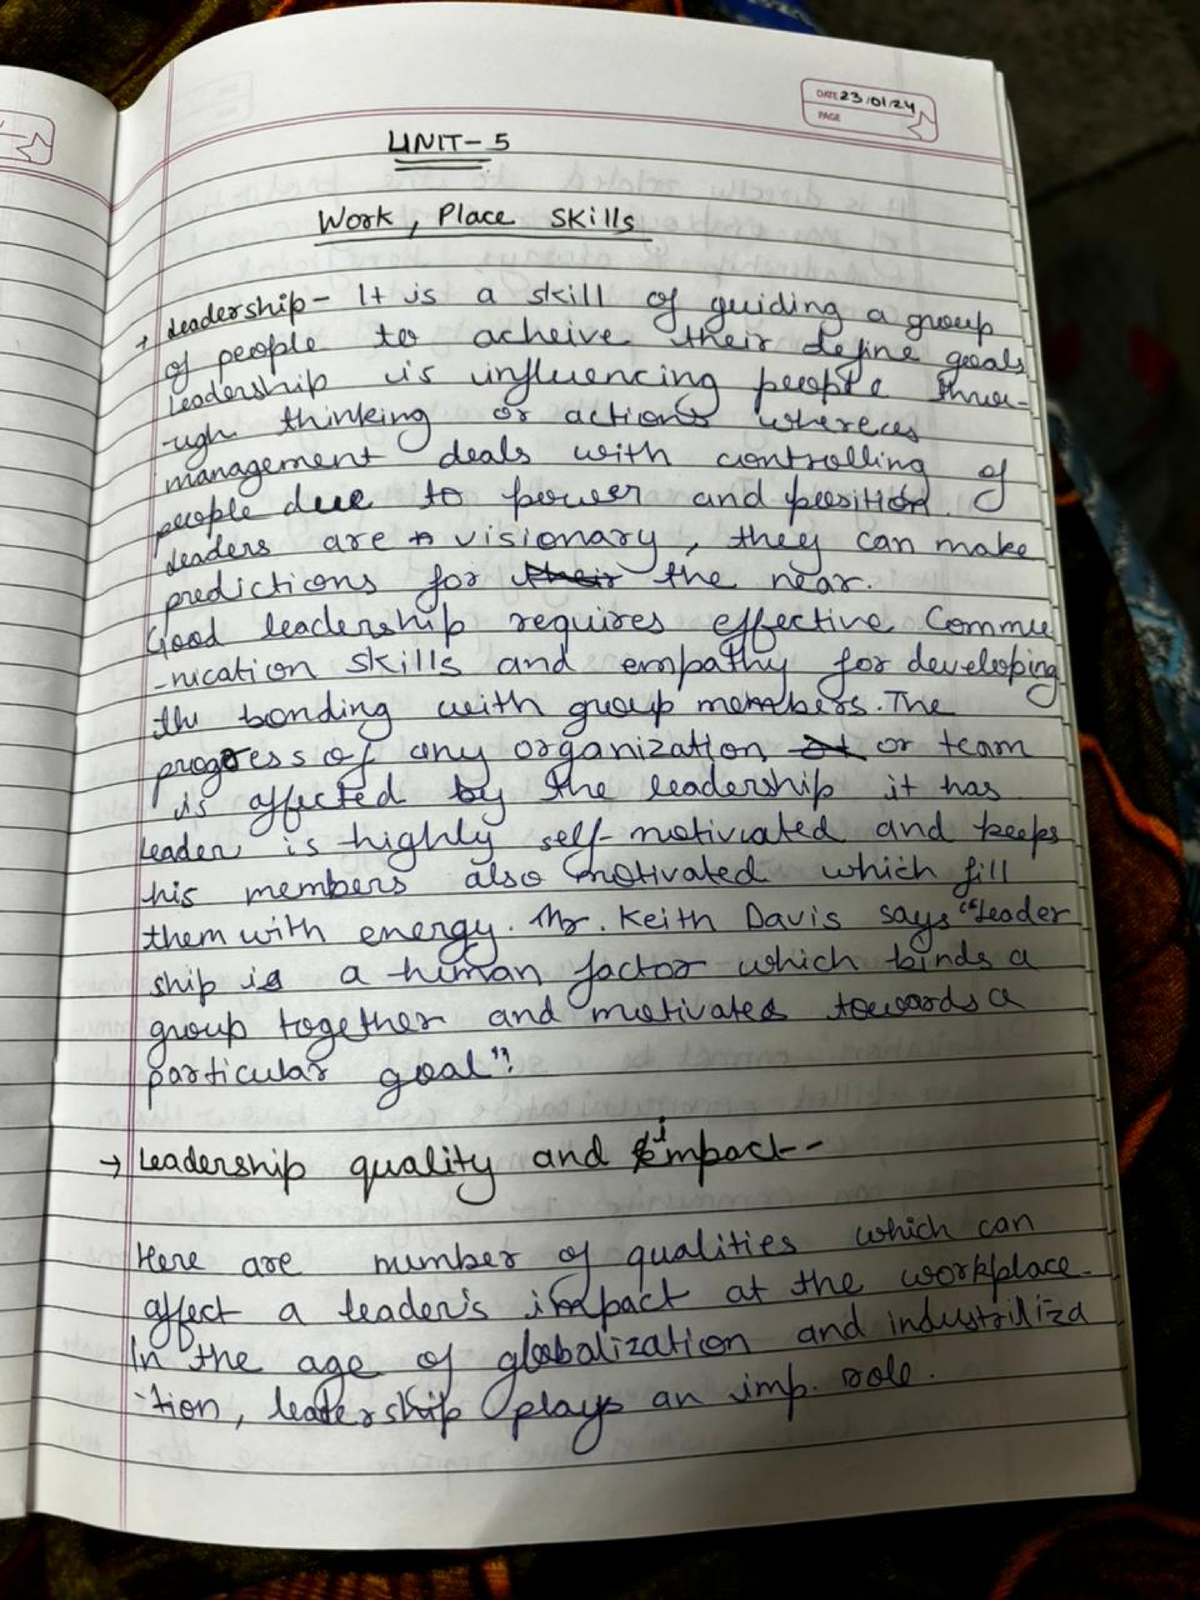 DATE 23/01/24
PAGE
UNIT-5
Work, Place Skills
→ Leadership - It is a skill of guiding a group
of people to acheive their define goals
Leadership is influencing people throu-
-ugh thinking or actions whereas
management deals with controlling of
people due to power and position.
Leaders are visionary, they can make
predictions for the near.
Good leadership requires effective Commu
-nication skills and empathy for developing
the bonding with group members. The
progress of any organization or team
is affected by the leadership it has
Leader is highly self-motivated and keeps
his members also motivated which fill
them with energy. Mr. Keith Davis says "Leader
ship is a human factor which binds a
group together and motivates towards a
particular goal"?
→ Leadership quality and impact-
Here are number of qualities which can
affect a leader's impact at the workplace.
In the age of globalization and industriliza
-tion, leadership plays an imp. role.